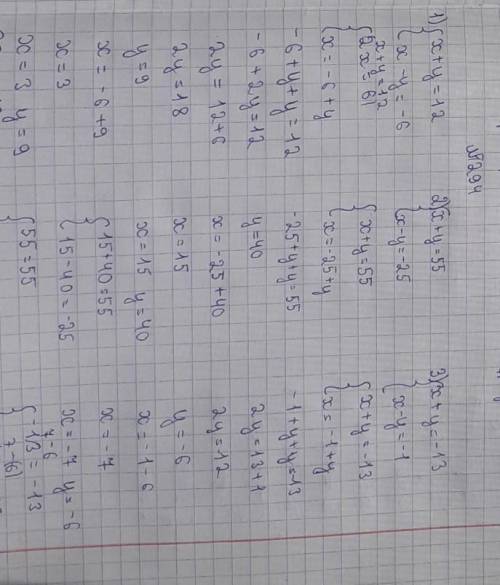 №294
1) { x + y = 12
{ x - y = -6
x + y = 12
{ x = -6 + y
-6 + y + y = 12
-6 + 2y = 12
2y = 12 + 6
2y = 18
y = 9
x = -6 + 9
x = 3
x = 3 y = 9
2) { x + y = 55
{ x - y = -25
{ x + y = 55
{ x = -25 + y
-25 + y + y = 55
y = 40
x = -25 + 40
x = 15
x = 15 y = 40
{ 15 + 40 = 55
{ 15 - 40 = -25
{ 55 = 55
3) { x + y = -13
{ x - y = -1
{ x + y = -13
{ x = -1 + y
-1 + y + y = -13
2y = 13 + 1
2y = 12
y = -6
x = -1 - 6
x = -7
x = -7 y = -6
-7 - 6
{ -13 = -13